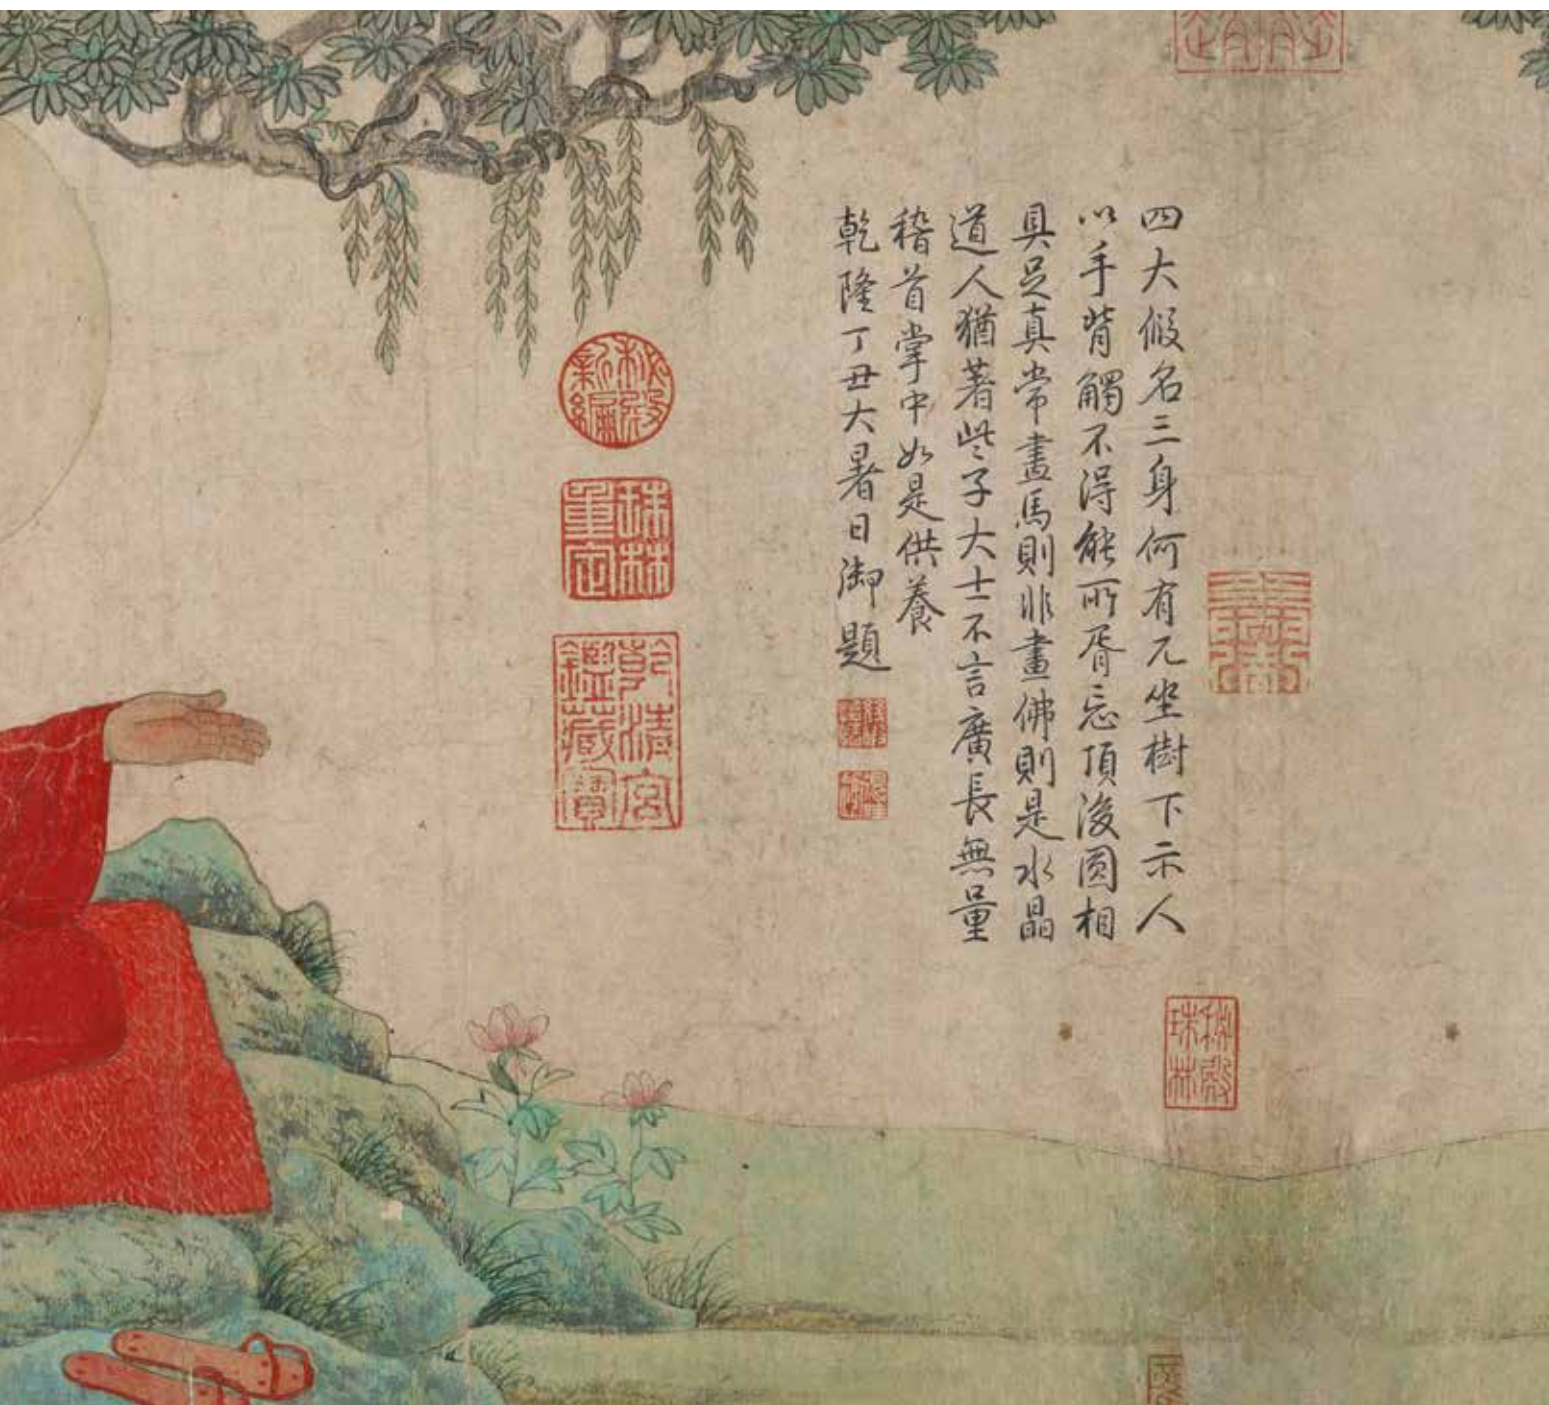 四大假名三身何有兀坐樹下示人
以手背觸不得能所胥忘頂後圓相
具足真常畫馬則非畫佛則是水晶
道人猶著些子大士不言廣長無量
稽首掌中如是供養
乾隆丁丑大暑日御題
秘殿新編
珠林重定
乾清宮鑑藏寶
秘殿珠林